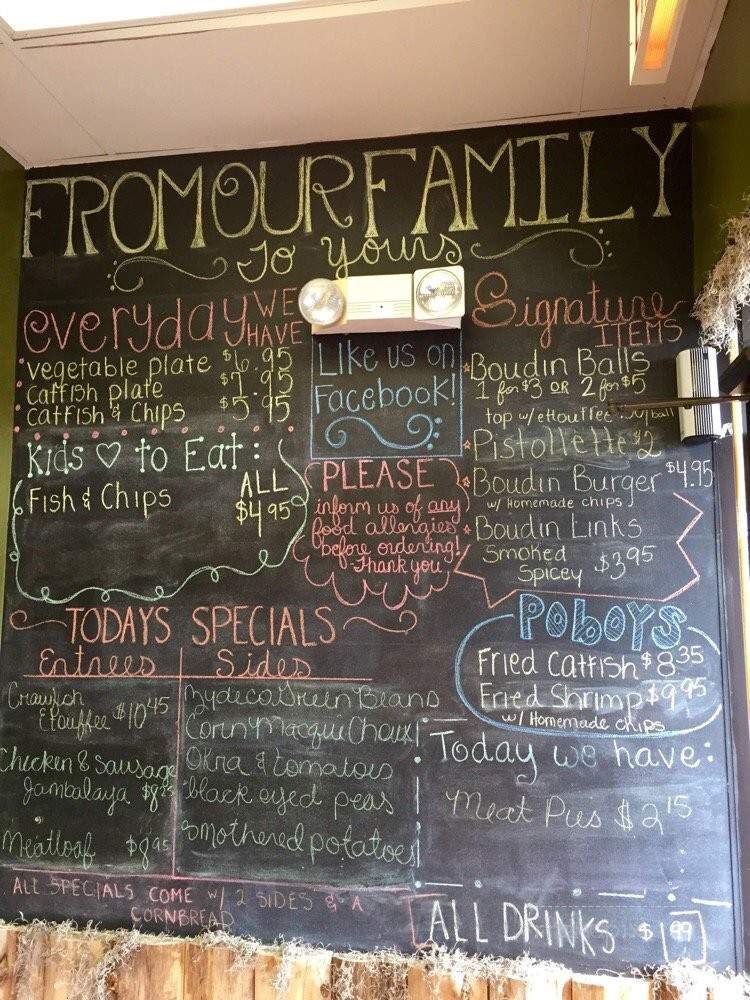 FROM OUR FAMILY
To Yours
everyday WE HAVE
vegetable plate $6.95
catfish plate $7.95
catfish & Chips $5.95
Kids ♡ to Eat:
Fish & Chips ALL $4.95
Like us on
Facebook!
PLEASE
inform us of any
food allergies
before ordering!
Thank you
Signature
ITEMS
Boudin Balls
1 for $3 OR 2 for $5
top w/ ettouffee
Pistollette $2
Boudin Burger $4.95
w/ Homemade chips
Boudin Links
Smoked
Spicey $3.95
TODAYS SPECIALS
Entrees
Crawfish
Etouffee $10.45
Chicken & Sausage
Jambalaya
Meatloaf $8.95
Sides
Zydeco Green Beans
Corn Macque Choux
Okra & tomatoes
black eyed peas
smothered potatoes
ALL SPECIALS COME w/ 2 SIDES & A
CORNBREAD
POBOYS
Fried Catfish $8.35
Fried Shrimp $9.95
w/ Homemade chips
Today we have:
Meat Pies $2.15
ALL DRINKS $1.99